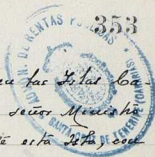 353
ADMON. DE RENTAS PUBLICAS
SANTA CRUZ DE TENERIFE (CANARIAS)
las Islas Ca-
señor Ministro
te está Isla, con